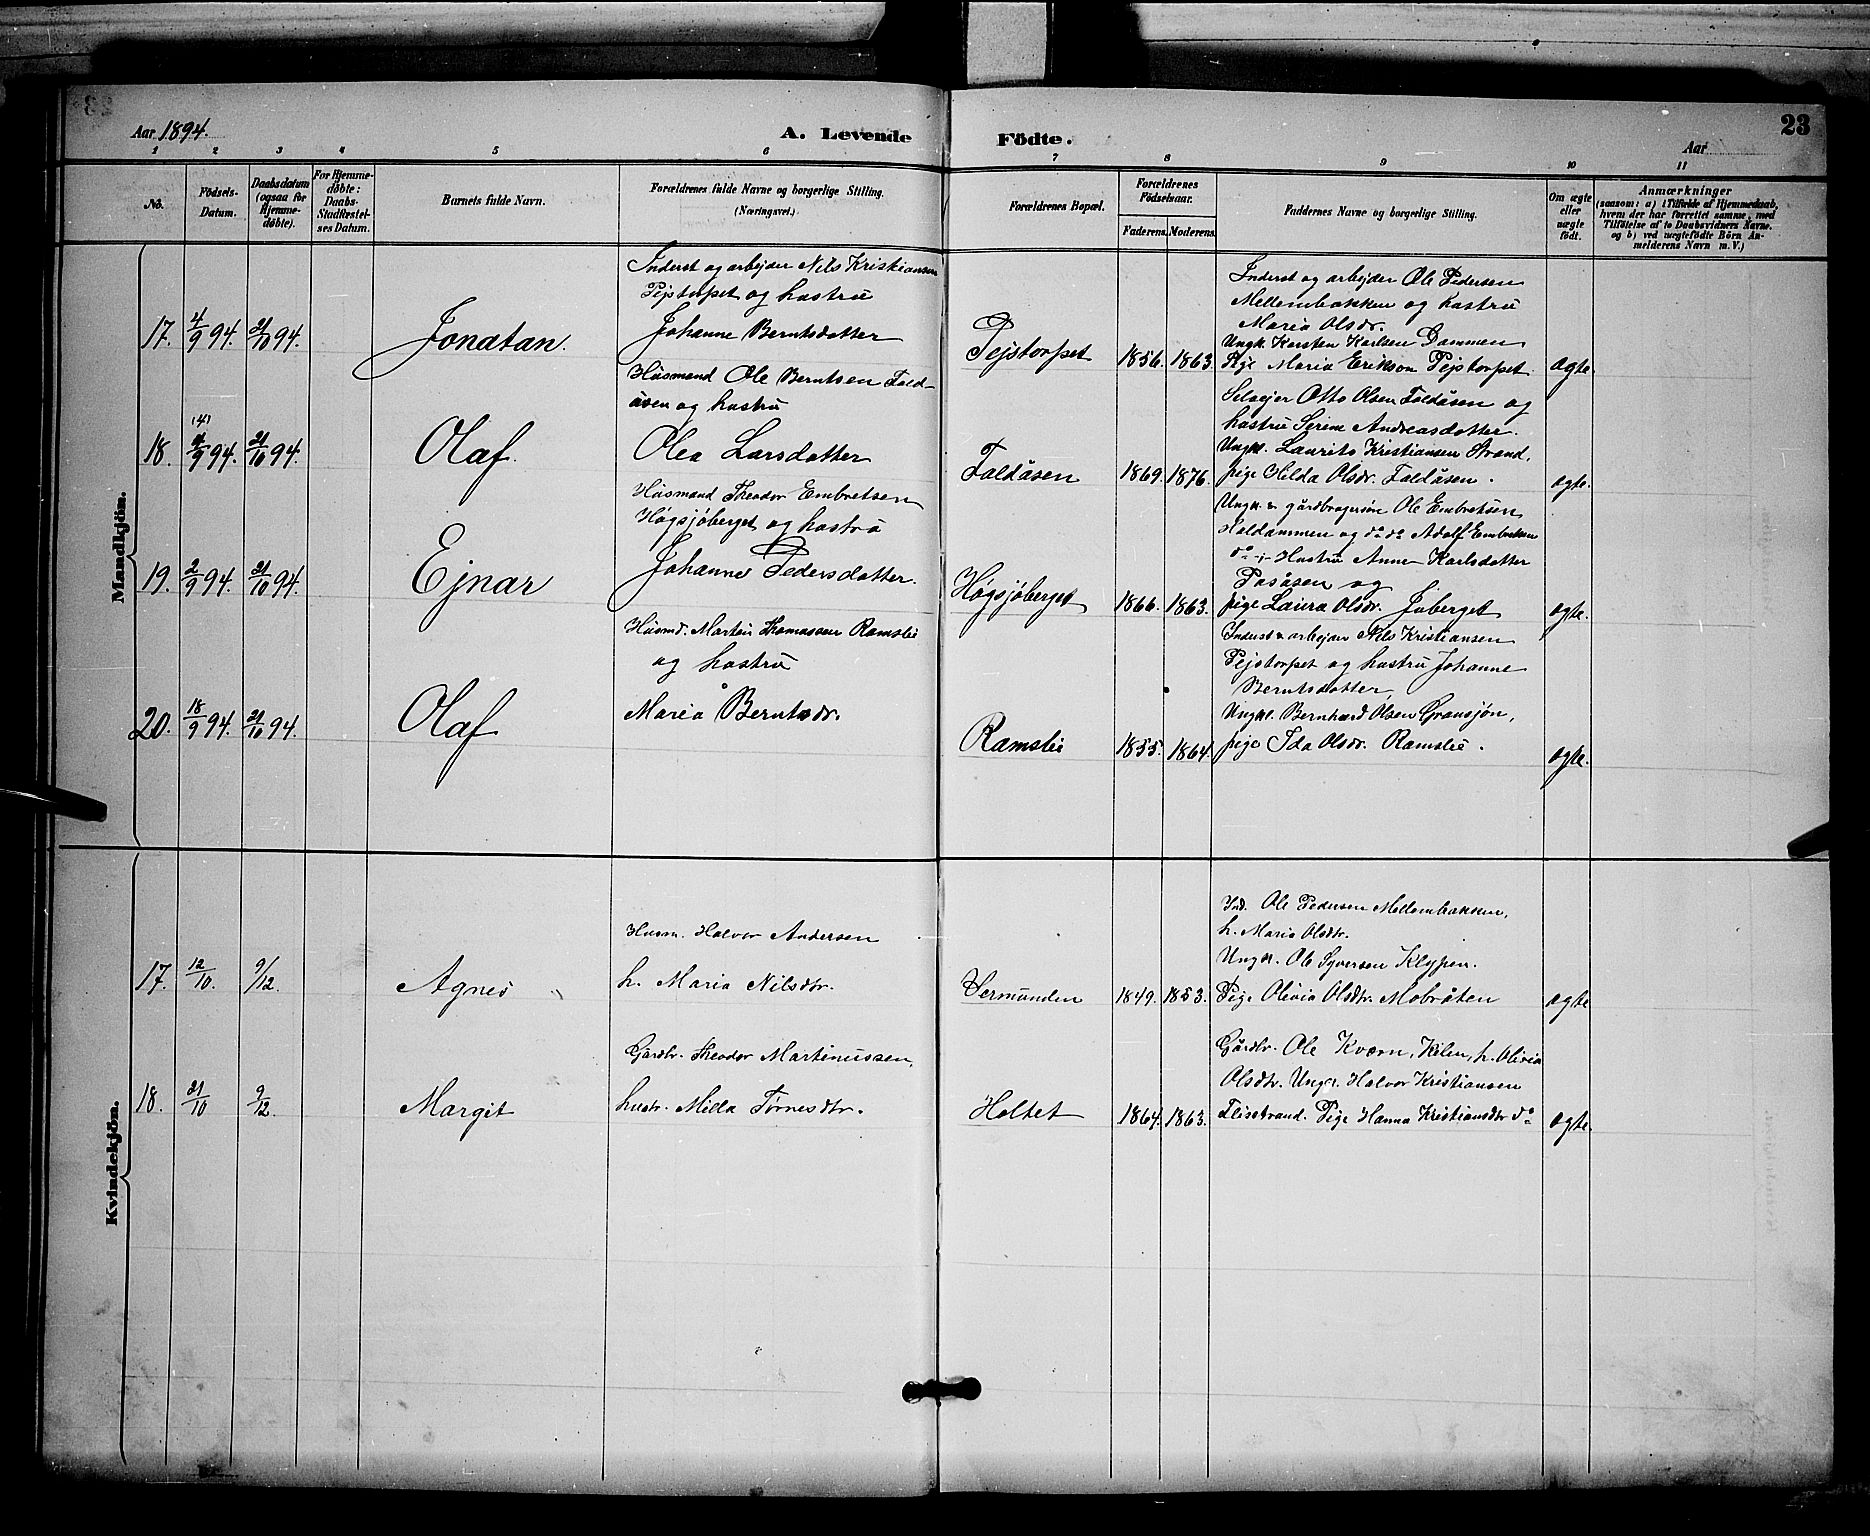 Aar 1894. A. Levende Födte. Aar 23
1 2 3 4 5 6 7 8 9 10 11
No. Födsels-Datum. Daabsdatum (ogsaa for Hjemme-døbte). For Hjemme-døbte: Daabs-Stadfæstel-ses Datum. Barnets fulde Navn. Forældrenes fulde Navne og borgerlige Stilling. (Næringsvei.) Forældrenes Bopæl. Forældrenes Födselsaar. Faderens. Moderens. Faddernes Navne og borgerlige Stilling. Om ægte eller uægte födt. Anmærkninger (saasom: a) i Tilfælde af Hjemmedaab, hvem der har forrettet samme, med Tilföielse af to Daabsvidners Navne, og b) ved uægtefödte Börn An-melderens Navn m. V.)
Mandkjön.
Inderst og arbejder Nils Kristiansen
Pejstorpet og hustru
17. 4/9 94. 21/10 94. Jonatan. Johanne Berntsdatter
Pejstorpet 1856. 1863.
Inderst og arbejder Ole Pedersen
Mellembakken og hustru
Maria Olsdr.
Ungk. Karsten Karlsen Dammen
Pige Maria Erikson Pejstorpet. ægte.
Husmand Ole Berntsen Fald-
åsen og hustru
(4)
18. 4/9 94. 21/10 94. Olaf. Olea Larsdatter
Faldåsen 1869. 1876.
Selvejer Otto Olsen Faldåsen og
hustru Serine Andreasdatter.
Ungk. Laurits Kristiansen Strand,
pige Hilda Olsdr. Faldåsen. ægte.
Husmand Theodor Embretsen
Høgsjøberget og hustru
19. 2/9 94. 21/10 94. Ejnar Johanne Pedersdatter.
Høgsjøberget 1866. 1863.
Ungk. & gårdbrugersøn Ole Embretsen
Holdammen og do do Adolf Embretsen
do Hustru Anne Karlsdatter
Pasåsen og
pige Laura Olsdr. Juberget ægte.
Husmd. Martin Thomassen Ramslie
og hustru
20. 18/9 94. 21/10 94. Olaf Maria Berntsdr.
Ramslie 1855. 1864.
Inderst & arbejder Nils Kristiansen
Pejstorpet og hustru Johanne
Berntsdatter,
Ungk. Bernhard Olsen Gransjøn,
pige Ida Olsdr. Ramslie. ægte.
Kvindekjön.
Husm. Halvor Andersen
17. 12/10. 9/12. Agnes h. Maria Nilsdtr.
Vermunden 1849. 1853.
Ind. Ole Pedersen Mellembakken,
h. Maria Olsdtr.
Ungk. Ole Syversen Klypen.
Pige Olivia Olsdtr. Mobråten ægte
Gårdbr. Theodor Martinussen,
18. 21/10 9/12 Margit hustr. Milla Tørnesdtr.
Holtet 1864. 1863.
Gårdbr. Ole Kværn, Kilen, h. Olivia
Olsdtr. Ungk. Halvor Kristiansen
Flisstrand. Pige Hanna Kristiansdtr do ægte.